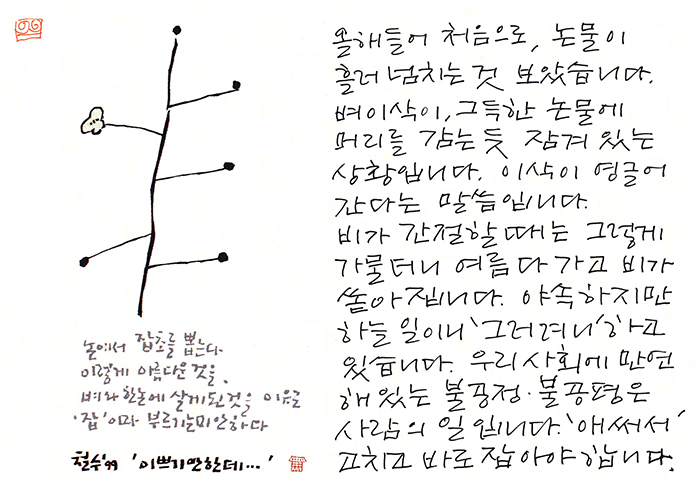 논에서 잡초를 뽑는다.
이렇게 아름다운 것을.
벼와 한논에 살게된 것을 이유로
'잡'이라 부르기 미안하다
철수'99 '이쁘기만한데…'
올해들어 처음으로, 논물이
흘러 넘치는 것 보았습니다.
벼이삭이, 그득한 논물에
머리를 감는 듯 잠겨 있는
상황입니다. 이삭이 영글어
간다는 말씀입니다.
비가 간절할 때는 그렇게
가물더니 여름 다 가고 비가
쏟아집니다. 야속하지만
하늘 일이니 '그러려니' 하고
있습니다. 우리 사회에 만연
해 있는 불공정·불공평은
사람의 일입니다. '애써서'
고치고 바로 잡아야 합니다.